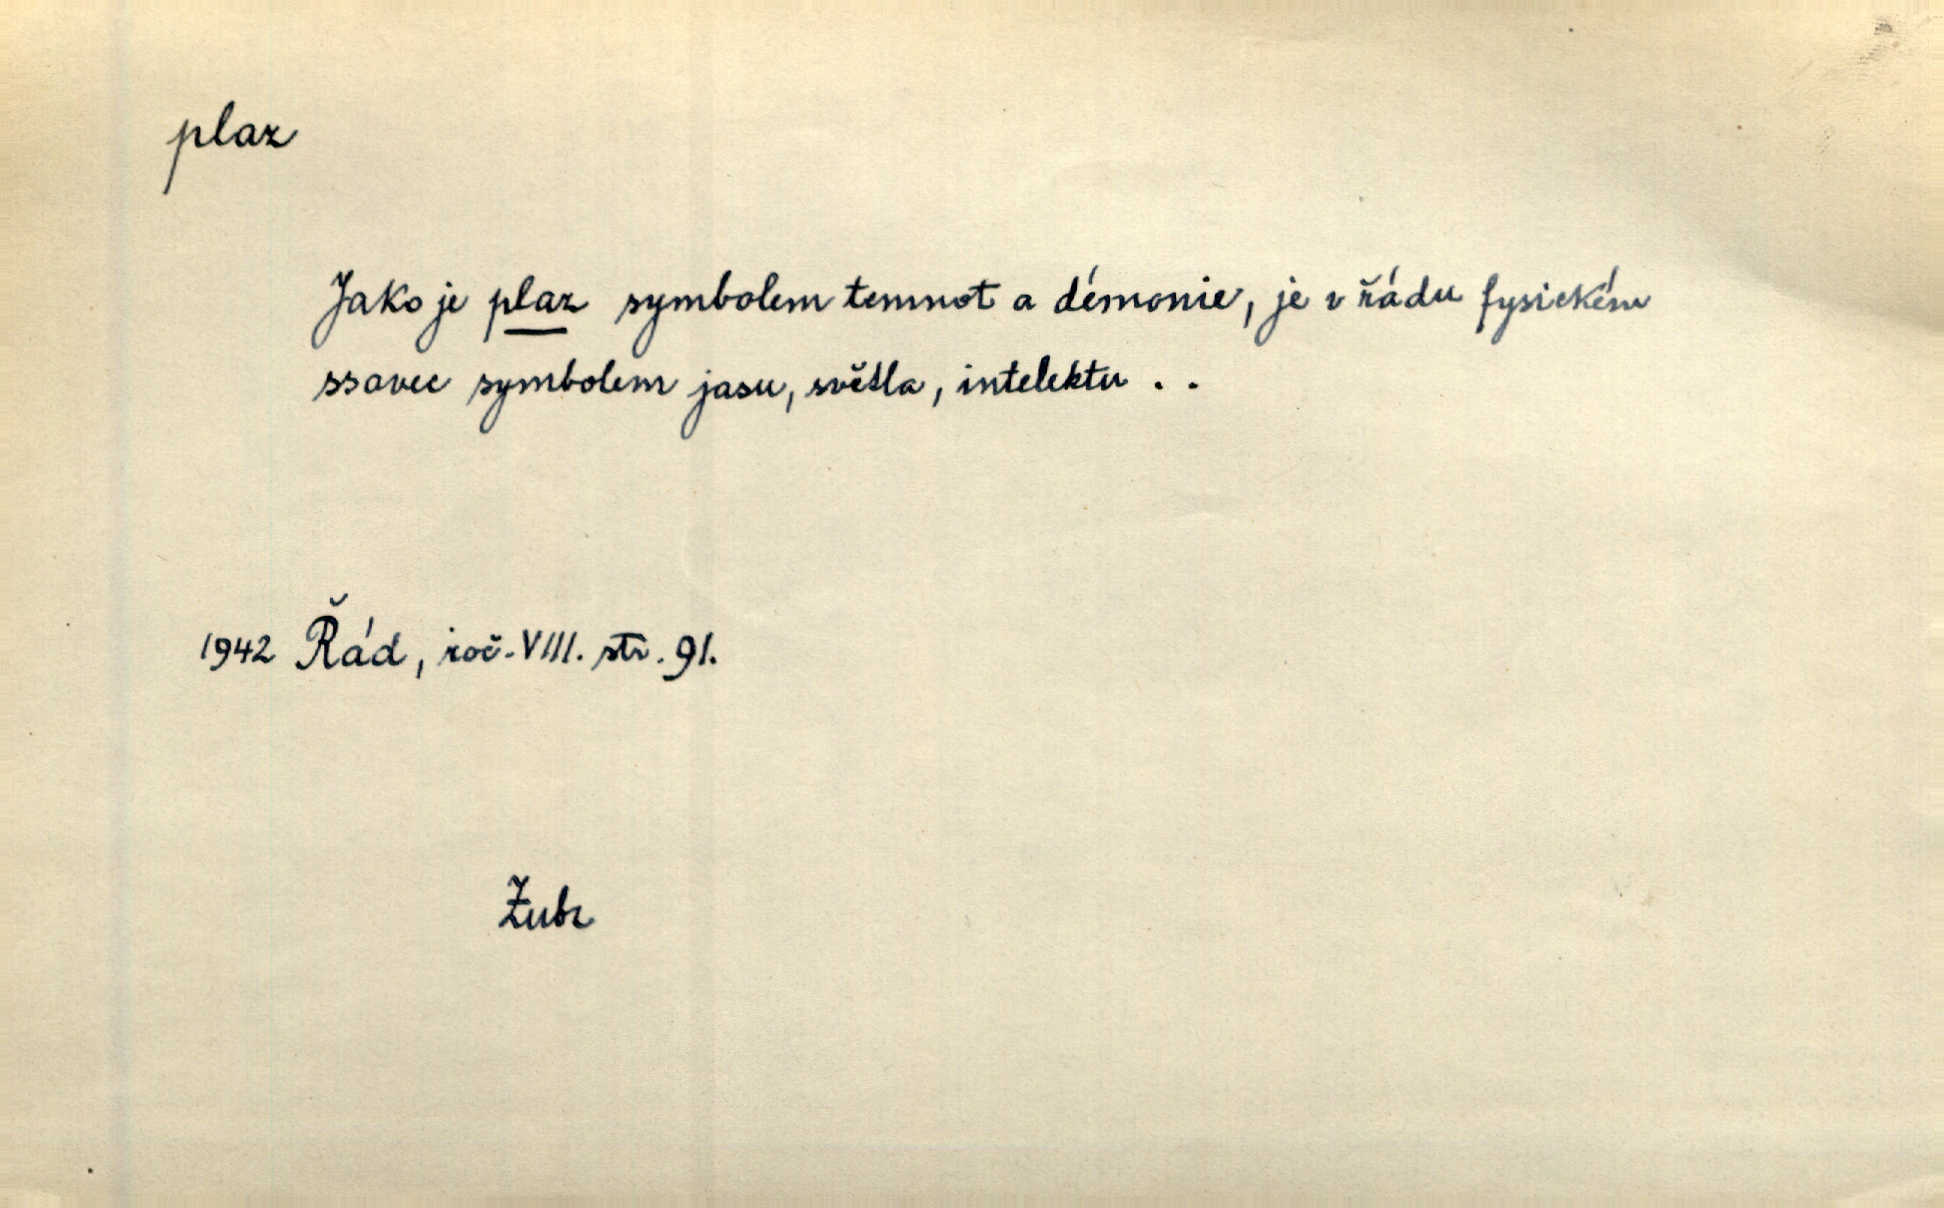 plaz
Jako je plaz symbolem temnot a démonie, je v řádu fysickém
ssavec symbolem jasu, světla, intelektu . .
1942 Řád, roč. VIII. str. 91.
Zubr